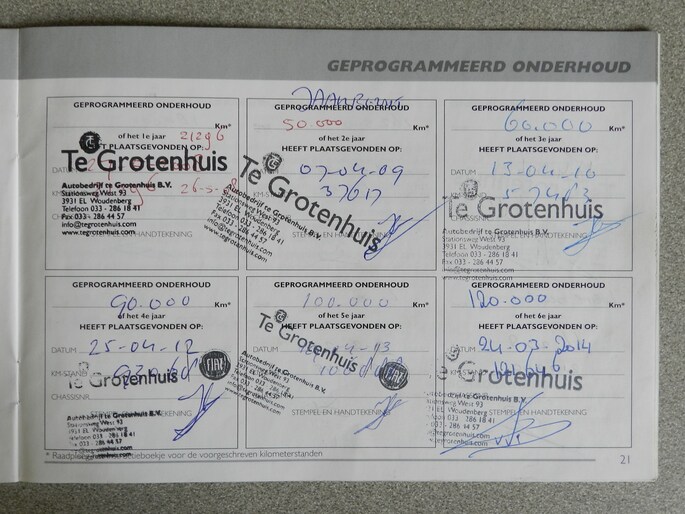 GEPROGRAMMEERD ONDERHOUD
GEPROGRAMMEERD ONDERHOUD
21296 Km*
of het 1e jaar
HEEFT PLAATSGEVONDEN OP:
Te Grotenhuis
Autobedrijf te Grotenhuis B.V.
Stationsweg West 93
3931 EL Woudenberg
Telefoon 033 - 286 18 41
Fax 033 - 286 44 57
info@tegrotenhuis.com
www.tegrotenhuis.com
GEPROGRAMMEERD ONDERHOUD
50.000 Km*
of het 2e jaar
HEEFT PLAATSGEVONDEN OP:
07-04-09
37017
Te Grotenhuis
Autobedrijf te Grotenhuis B.V.
Stationsweg West 93
3931 EL Woudenberg
Telefoon 033 - 286 18 41
Fax 033 - 286 44 57
info@tegrotenhuis.com
www.tegrotenhuis.com
STEMPEL EN HANDTEKENING
GEPROGRAMMEERD ONDERHOUD
60.000 Km*
of het 3e jaar
HEEFT PLAATSGEVONDEN OP:
DATUM 13-04-10
Te Grotenhuis
Autobedrijf te Grotenhuis B.V.
Stationsweg West 93
3931 EL Woudenberg
Telefoon 033 - 286 18 41
Fax 033 - 286 44 57
info@tegrotenhuis.com
GEPROGRAMMEERD ONDERHOUD
90.000 Km*
of het 4e jaar
HEEFT PLAATSGEVONDEN OP:
DATUM 25-04-12
Te Grotenhuis
FIAT
CHASSISNR.
Autobedrijf te Grotenhuis B.V.
Stationsweg West 93
3931 EL Woudenberg
GEPROGRAMMEERD ONDERHOUD
100.000 Km*
of het 5e jaar
HEEFT PLAATSGEVONDEN OP:
Te Grotenhuis
FIAT
Autobedrijf te Grotenhuis B.V.
Stationsweg West 93
3931 EL Woudenberg
STEMPEL EN HANDTEKENING
GEPROGRAMMEERD ONDERHOUD
120.000 Km*
of het 6e jaar
HEEFT PLAATSGEVONDEN OP:
DATUM 24-03-2014
Te Grotenhuis
Autobedrijf te Grotenhuis B.V.
Stationsweg West 93
3931 EL Woudenberg
voor de voorgeschreven kilometerstanden
21